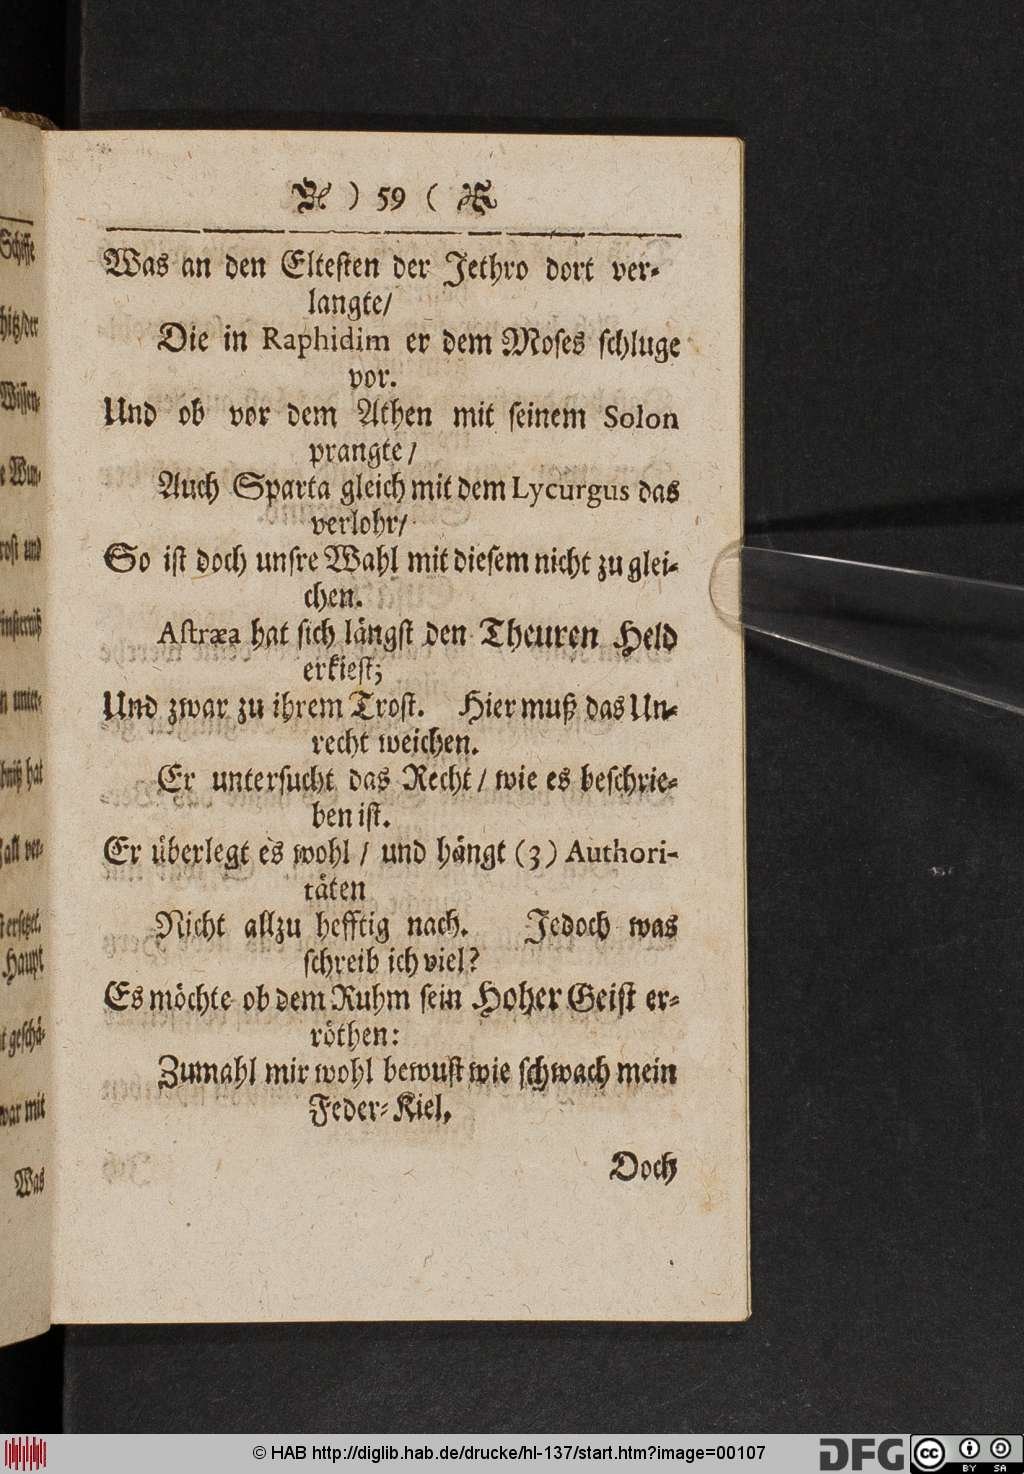 ) 59 (
Was an den Eltesten der Jethro dort ver-
langte/
Die in Raphidim er dem Moses schluge
vor.
Und ob vor dem Athen mit seinem Solon
prangte/
Auch Sparta gleich mit dem Lycurgus das
verlohr/
So ist doch unsre Wahl mit diesem nicht zu glei-
chen.
Astræa hat sich längst den Theuren Held
erkiest;
Und zwar zu ihrem Trost. Hier muß das Un-
recht weichen.
Er untersucht das Recht / wie es beschrie-
ben ist.
Er überlegt es wohl / und hängt (3) Authori-
täten
Nicht allzu hefftig nach. Jedoch was
schreib ich viel?
Es möchte ob dem Ruhm sein Hoher Geist er-
röthen:
Zumahl mir wohl bewust wie schwach mein
Feder-Kiel,
Doch
Schiffe
hitz/der
Wissen-
e Wun-
rost und
n unter-
bniß hat
fall ver-
t ersetzet.
Haupt
t geschä-
war mit
Was
© HAB http://diglib.hab.de/drucke/hl-137/start.htm?image=00107
DFG
cc BY SA